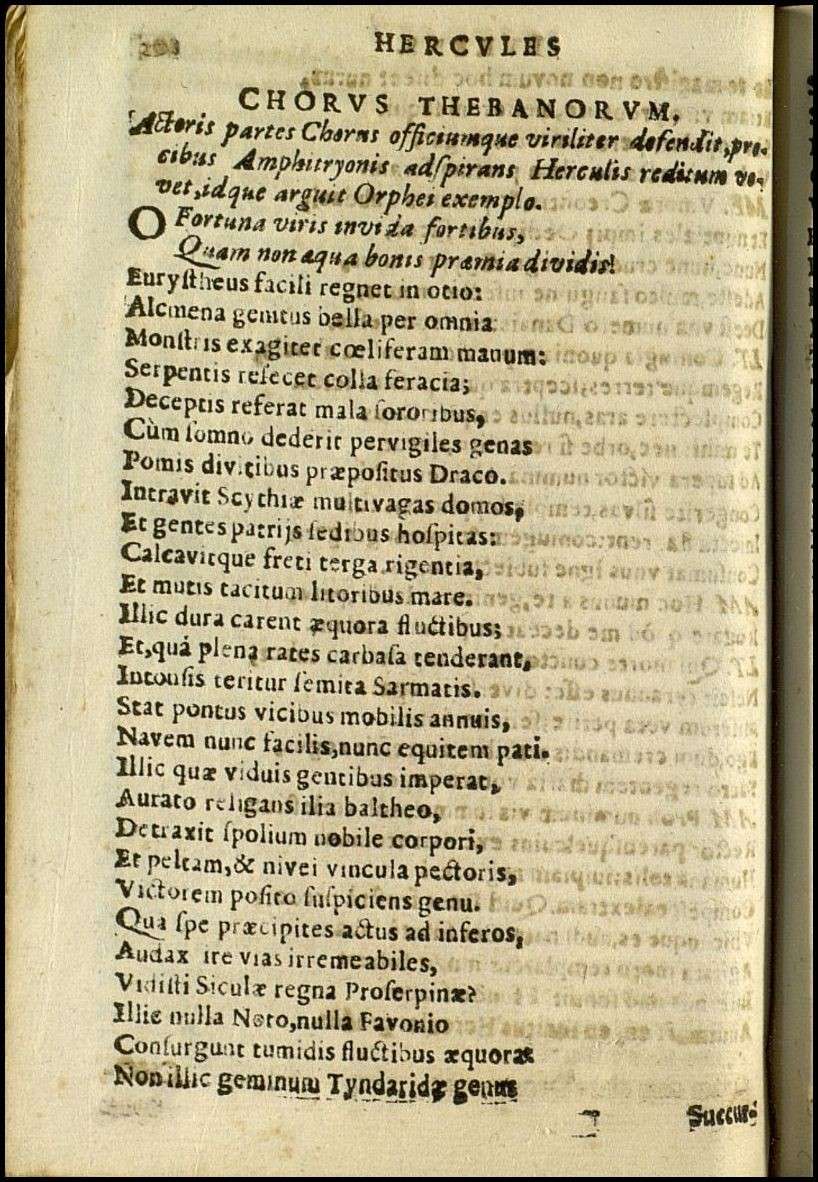 HERCVLES
CHORVS THEBANORVM.
Actoris partes Chorus officiumque viriliter defendit, pre-
cibus Amphitryonis adſpirans Herculis reditum vo-
vet, idque arguit Orphei exemplo.
O Fortuna viris invida fortibus,
Quam non æqua bonis præmia dividis!
Euryſtheus facili regnet in otio:
Alcmena genitus bella per omnia
Monſtris exagitet cœliferam manum:
Serpentis reſecet colla feracia;
Deceptis referat mala ſororibus,
Cùm ſomno dederit pervigiles genas
Pomis divitibus præpoſitus Draco.
Intravit Scythiæ multivagas domos,
Et gentes patrijs ſedibus hoſpitas:
Calcavitque freti terga rigentia,
Et mutis tacitum litoribus mare.
Illic dura carent æquora fluctibus;
Et, quá plena rates carbaſa tenderant,
Intonſis teritur ſemita Sarmatis.
Stat pontus vicibus mobilis annuis,
Navem nunc facilis, nunc equitem pati.
Illic quæ viduis gentibus imperat,
Aurato religans ilia baltheo,
Detraxit ſpolium nobile corpori,
Et peltam, & nivei vincula pectoris,
Victorem poſito ſuſpiciens genu.
Qua ſpe præcipites actus ad inferos,
Audax ire vias irremeabiles,
Vidiſti Siculæ regna Proſerpinæ?
Illic nulla Noto, nulla Favonio
Conſurgunt tumidis fluctibus æquora:
Non illic geminum Tyndaridæ genus
Succur-